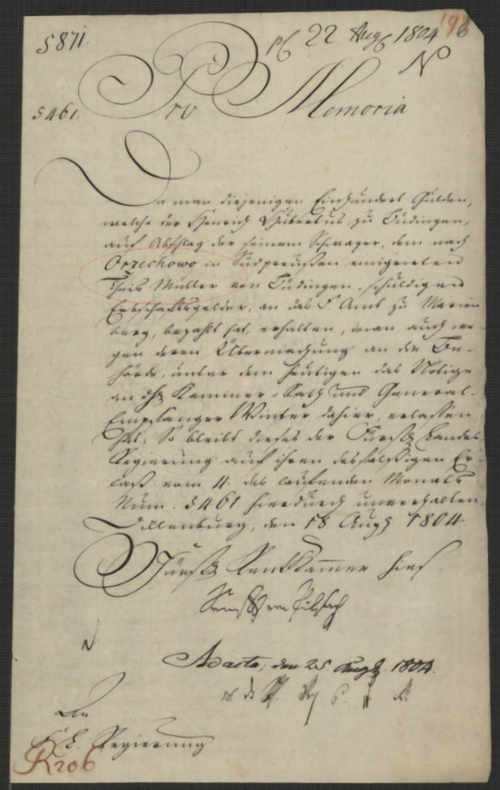 5871.
ps 22 Augs 1804
198
N
Pro Memoria
5461.
Da man diejenigen Einhundert Gulden,
welche der Henrich Hübertus zu Büdingen,
auf Abschlag der seinem Schwager, dem nach
Orzechowo in Südpreußen emigrirten
Theis Müller von Büdingen, schuldigen
Erbschaftsgelder, an das F. Amt zu Marien
berg, bezahlt hat, erhalten, man auch we-
gen deren Übermachung an die Be-
hörde, unter dem heutigen das Nötige
an H. Kammer-Rath und General-
Empfänger Winter dahier, erlassen
hat. So bleibt dieses der Fürstl. Landes
Regierung auf ihren desfalsigen Er-
laß vom 4. des laufenden Monats
Num. 5461 hierdurch unverhalten.
Dillenburg, den 18 Augs 1804.
Fürstl. RentKammer hies.
von
Acacta, den 25 Augs. 1804.
An
F. L. Regierung
R206